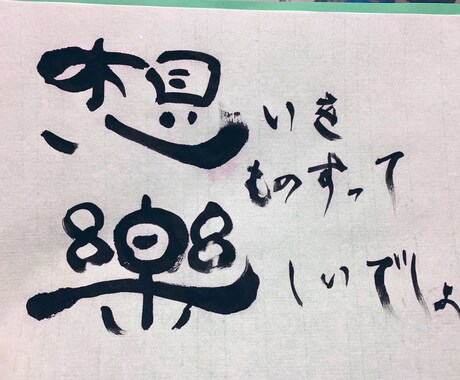 想いを
ものすって
樂しいでしょ